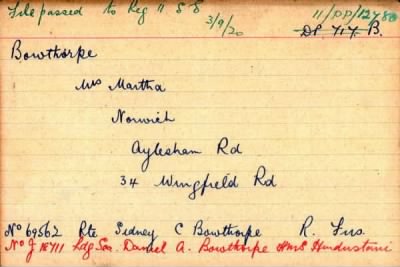 File passed to Reg 11 S E 3/9/20 11/DP/12480
DP 717 B.
Bowthorpe
Mrs Martha
Norwich
Aylesham Rd
34 Wingfield Rd
No 69562 Pte Sidney C Bowthorpe R. Fus
No J 18711 Ldg Sea. Daniel A. Bowthorpe HMS Hindustani